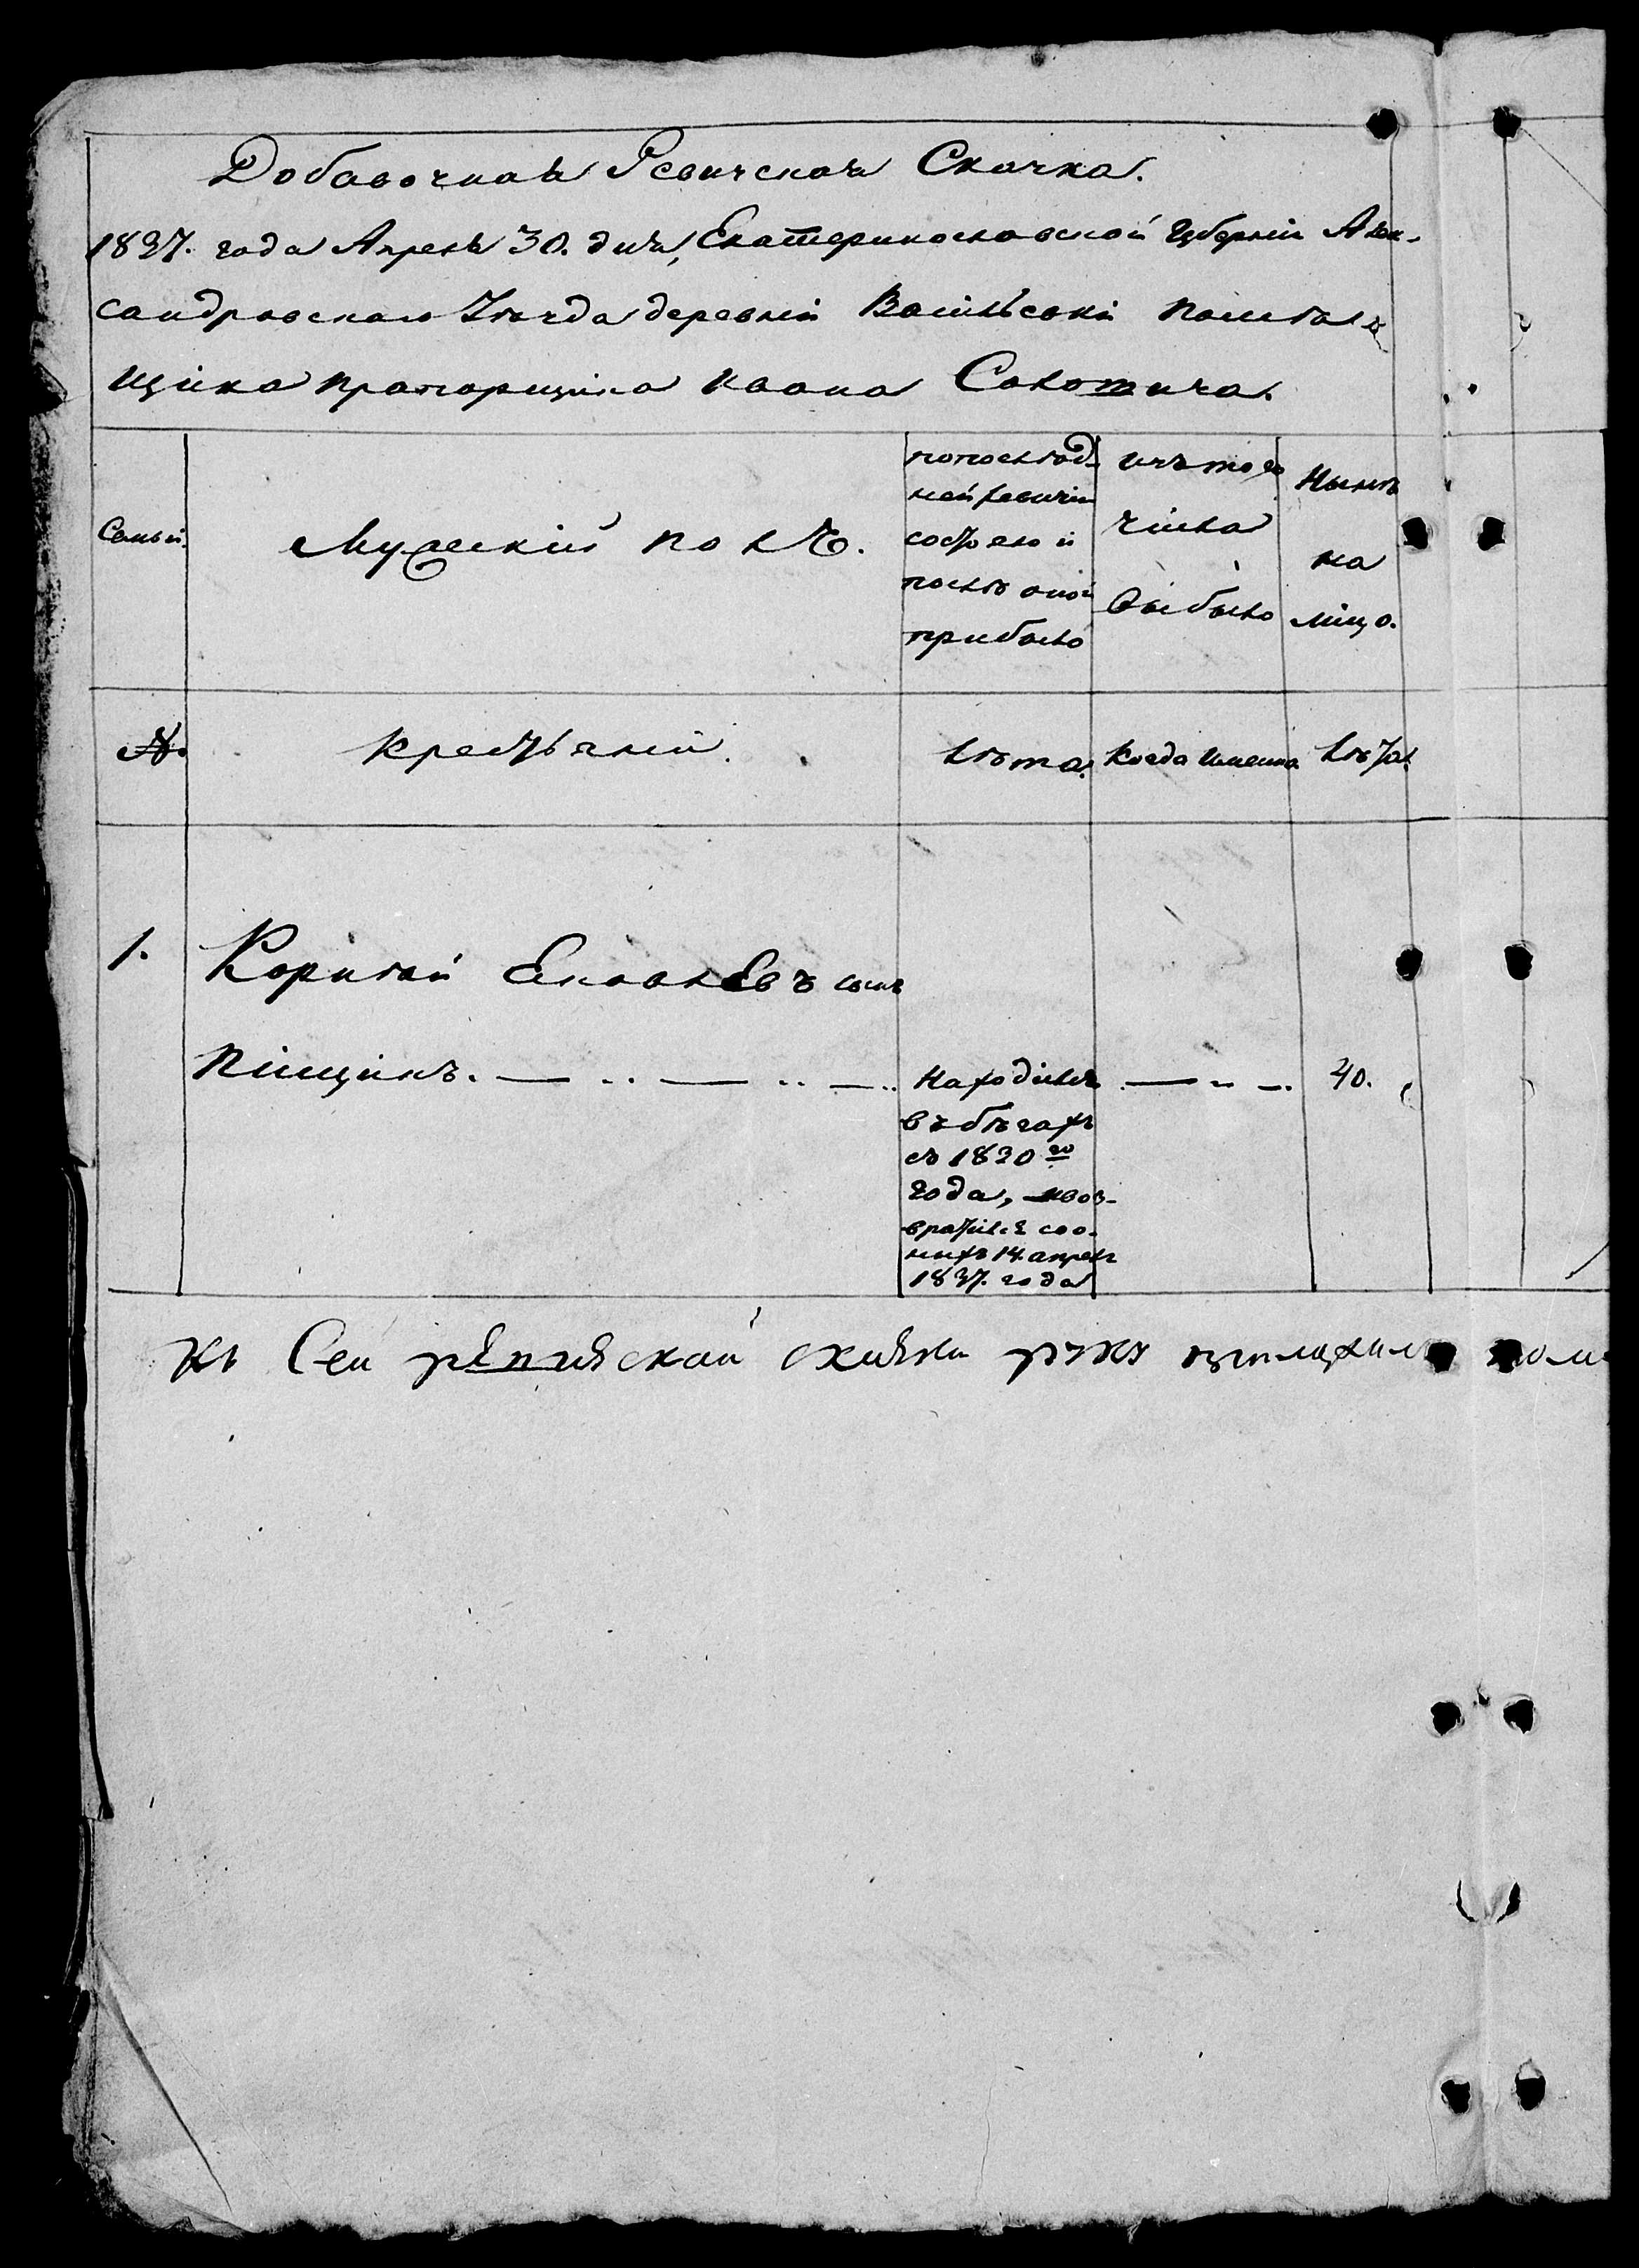 Добавочная Ревизская Сказка.
1837. года Апреля 30. дня, Екатеринославской Губерніи Алек-
сандровскаго Уѣзда деревни Васильевки помѣ-
щика прапорщика Ивана
Семьи.
Мужескій полъ.
по послѣд-
ней ревизіи
состояло и
послѣ оной
прибыло
изъ того
числа
выбыло
Нынѣ
на
лицо.
№.
крестьяніи.
Лѣта.
Когда именно.
Лѣта.
1.
Корнѣй Яковлевъ сынъ
Пищикъ.
Находился
въ бѣгахъ
съ 1830го
года, воз-
вратился со о-
ныхъ 14. апреля
1837. года
40.
Къ Сей ревизской сказки руку приложилъ